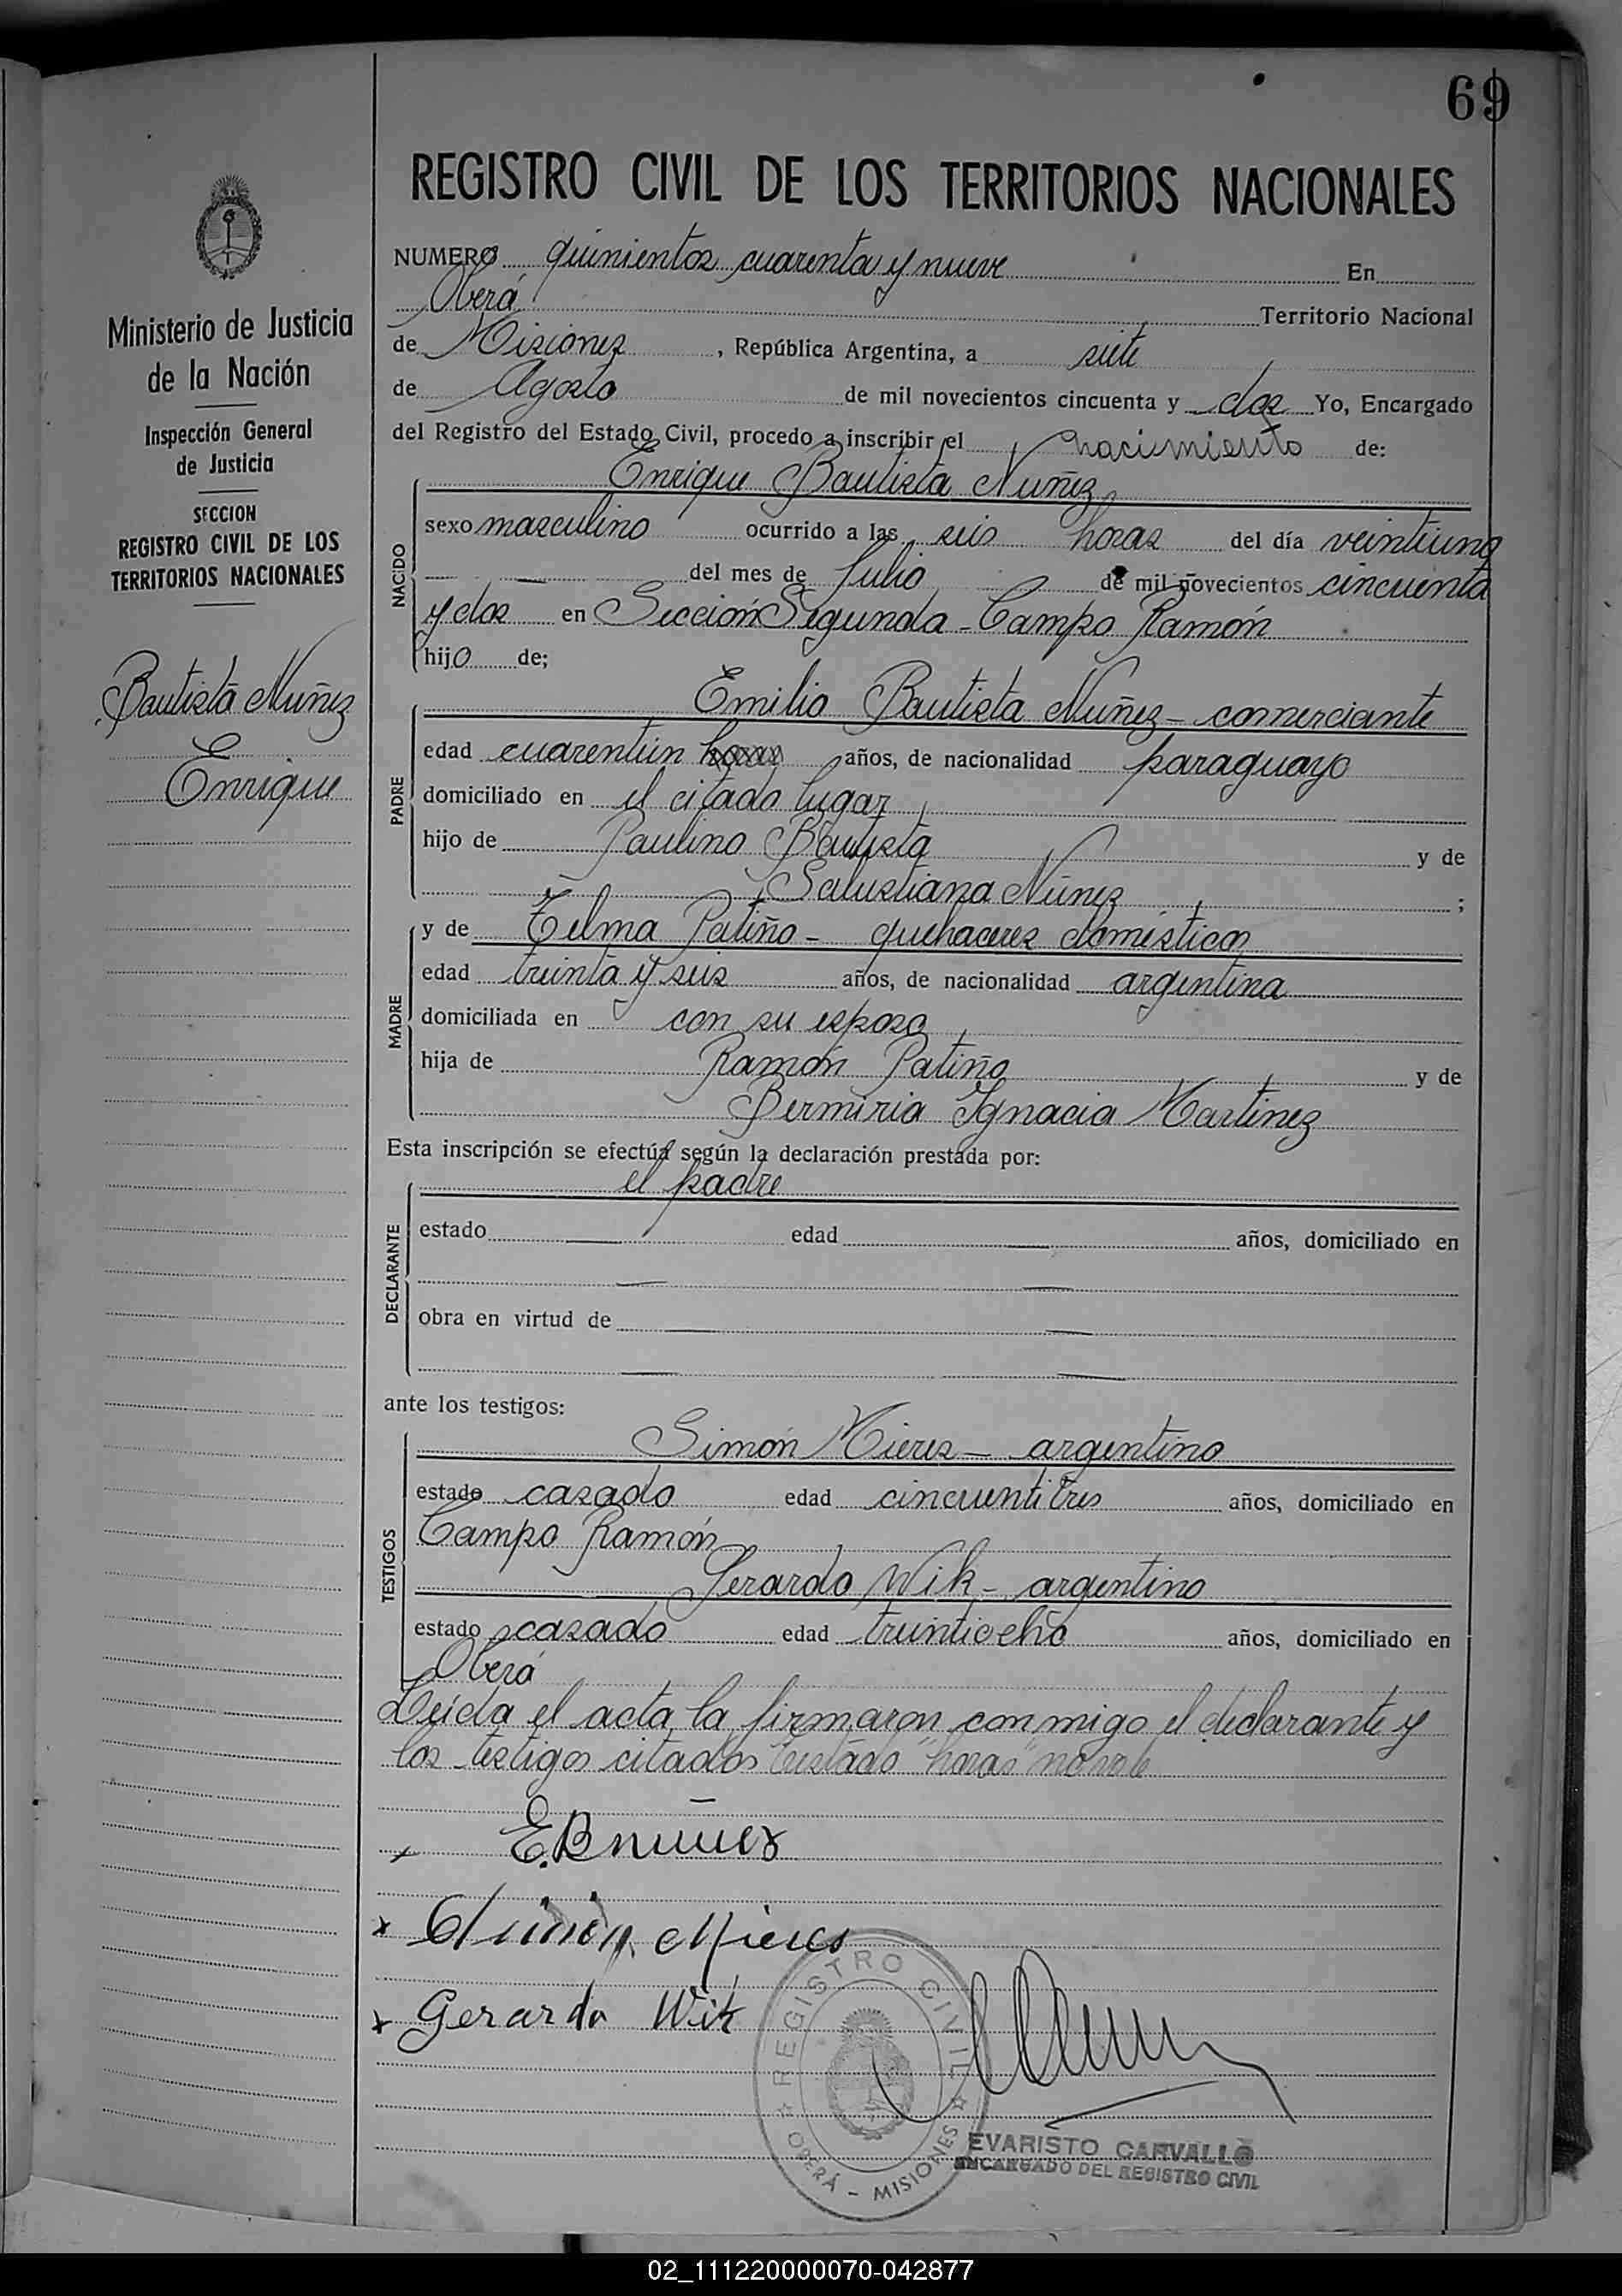 69
REGISTRO CIVIL DE LOS TERRITORIOS NACIONALES
Ministerio de Justicia
de la Nación
Inspección General
de Justicia
SECCION
REGISTRO CIVIL DE LOS
TERRITORIOS NACIONALES
Bautista Nuñez
Enrique
NUMERO quinientos cuarenta y nueve En
Oberá Territorio Nacional
de Misiones, República Argentina, a siete
de Agosto de mil novecientos cincuenta y dos Yo, Encargado
del Registro del Estado Civil, procedo a inscribir el nacimiento de:
Enrique Bautista Nuñez
NACIDO
sexo masculino ocurrido a las seis horas del día veintiuno
del mes de Julio de mil novecientos cincuenta
y dos en Sección Segunda - Campo Ramón
hijo de;
Emilio Bautista Nuñez - comerciante
PADRE
edad cuarentiún horas años, de nacionalidad paraguayo
domiciliado en el citado lugar
hijo de Paulino Bautista y de
Salustiana Núnez ;
MADRE
y de Telma Patiño - quehaceres domésticos
edad treinta y seis años, de nacionalidad argentina
domiciliada en con su esposo
hija de Ramón Patiño y de
Bermiria Ignacia Martinez
Esta inscripción se efectúa según la declaración prestada por:
el padre
DECLARANTE
estado edad años, domiciliado en
obra en virtud de
ante los testigos:
Simón Mieres - argentino
TESTIGOS
estado casado edad cincuentitres años, domiciliado en
Campo Ramón
Gerardo Wik - argentino
estado casado edad treintiocho años, domiciliado en
Oberá
Leída el acta la firmaron conmigo el declarante y
los testigos citados Testado "horas" no vale
E.B nuñez
Simón Mieres
Gerardo Wik
REGISTRO CIVIL
OBERÁ - MISIONES
EVARISTO CARVALLO
ENCARGADO DEL REGISTRO CIVIL
02_111220000070-042877